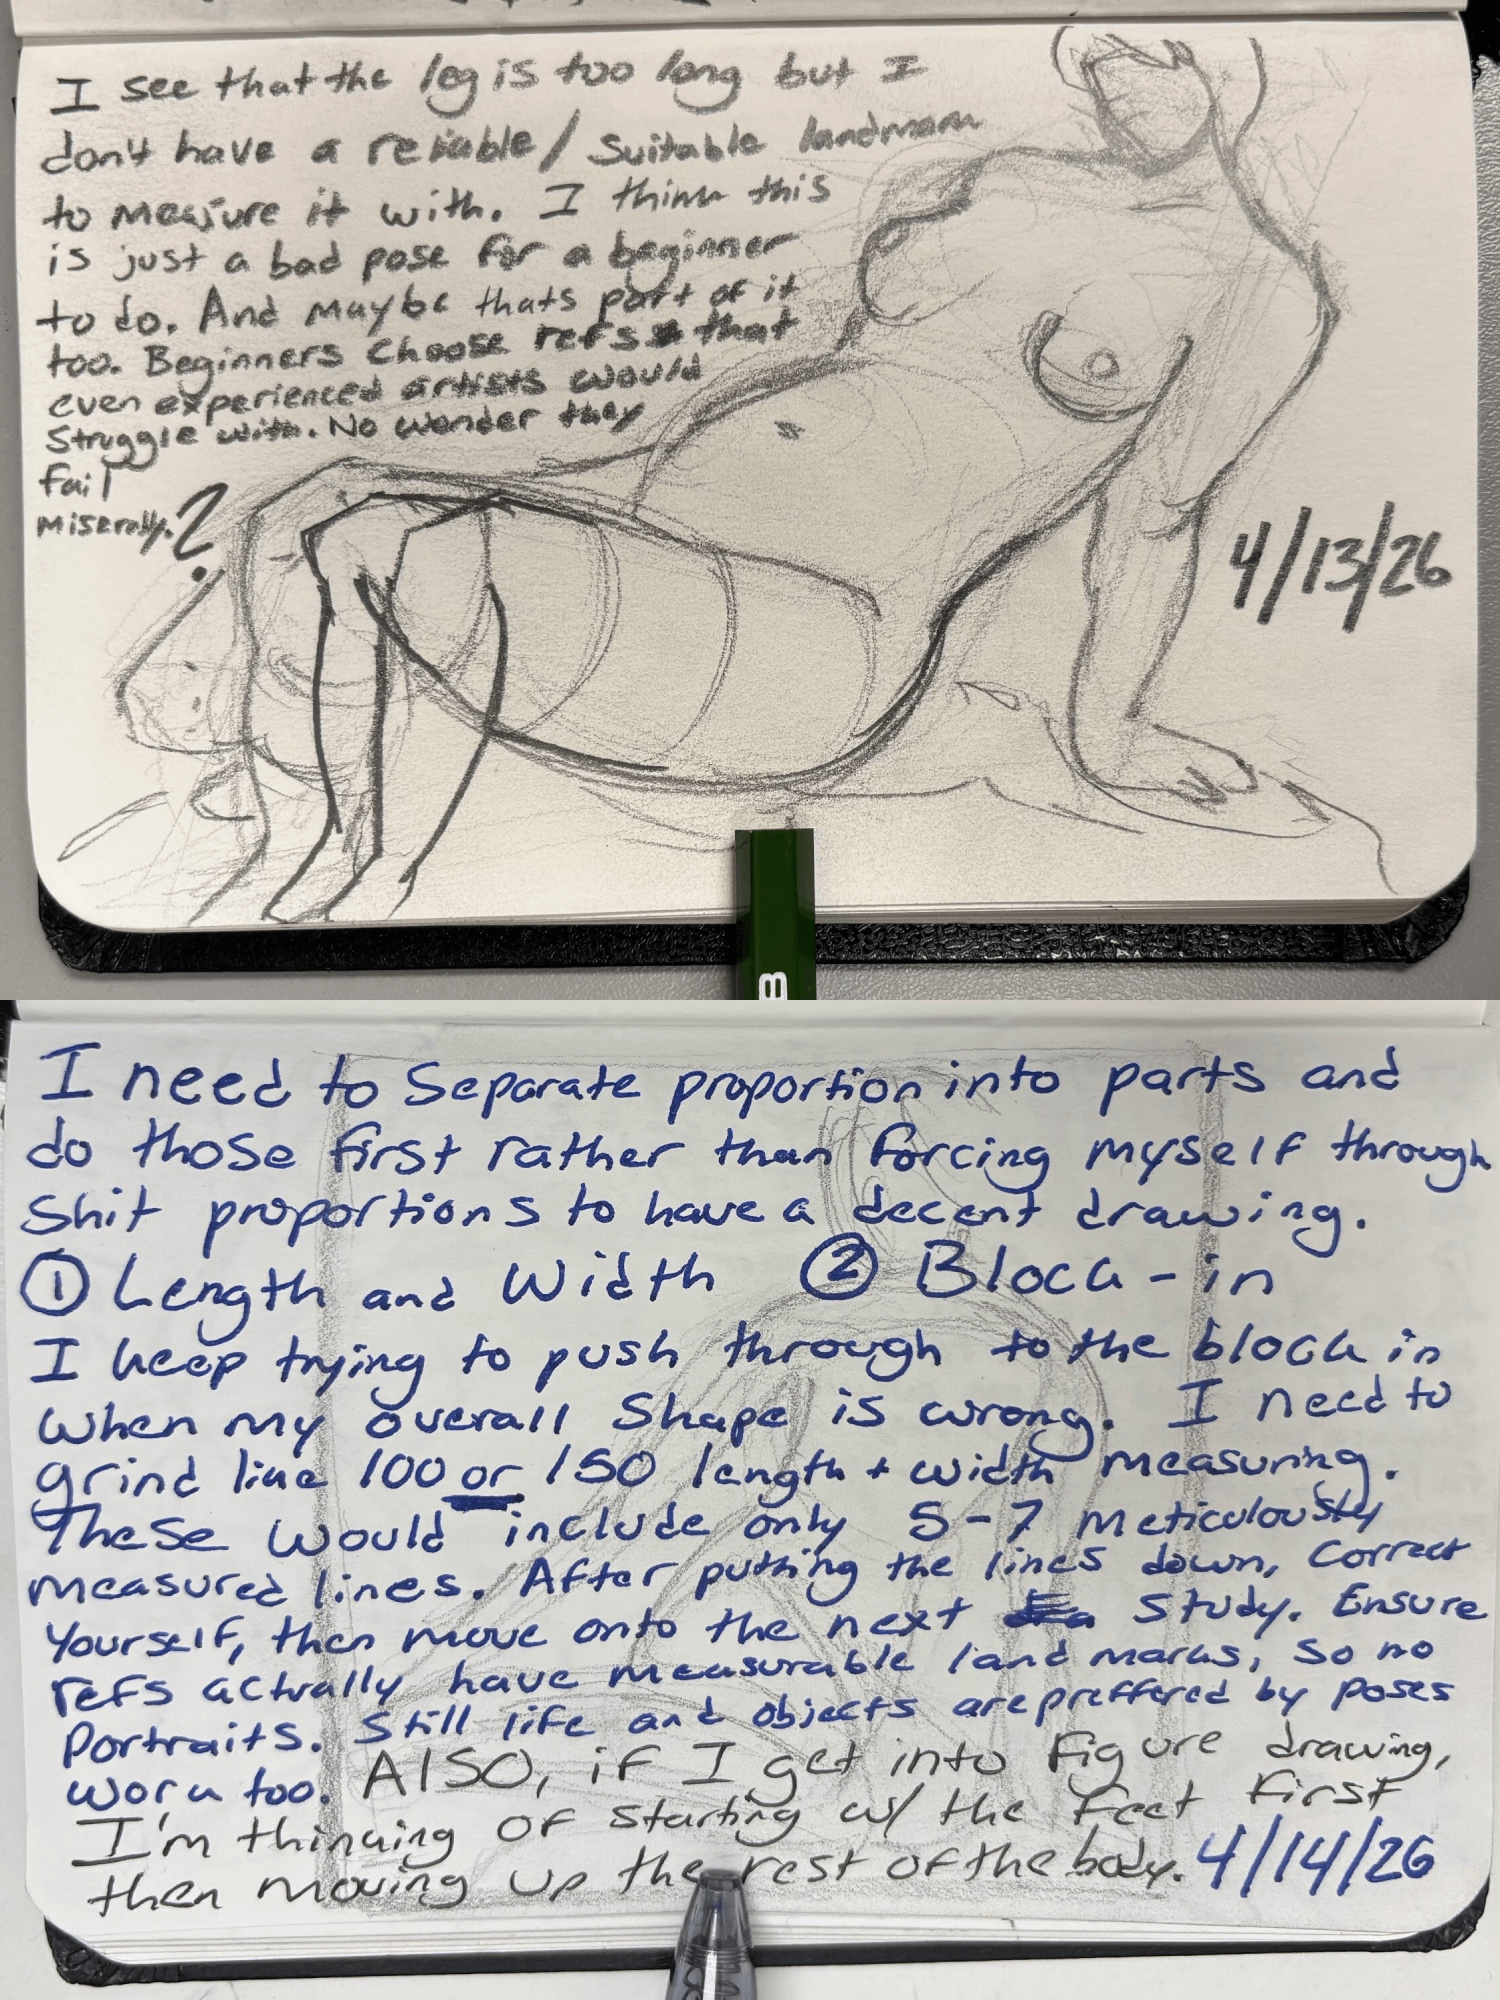 I see that the leg is too long but I
don't have a reliable/suitable landmark
to measure it with. I think this
is just a bad pose for a beginner
to do. And maybe thats part of it
too. Beginners choose refs that
even experienced artists would
struggle with. No wonder they
fail
miserably.?
4/13/26
B
I need to separate proportion into parts and
do those first rather than forcing myself through
shit proportions to have a decent drawing.
① Length and Width ② Block-in
I keep trying to push through to the block in
when my overall shape is wrong. I need to
grind like 100 or 150 length + width measuring.
These would include only 5-7 meticulously
measured lines. After putting the lines down, correct
yourself, then move onto the next study. Ensure
refs actually have measurable land marks, so no
portraits. Still life and objects are preffered by poses
work too. Also, if I get into figure drawing,
I'm thinking of starting w/ the feet first
then moving up the rest of the body. 4/14/26